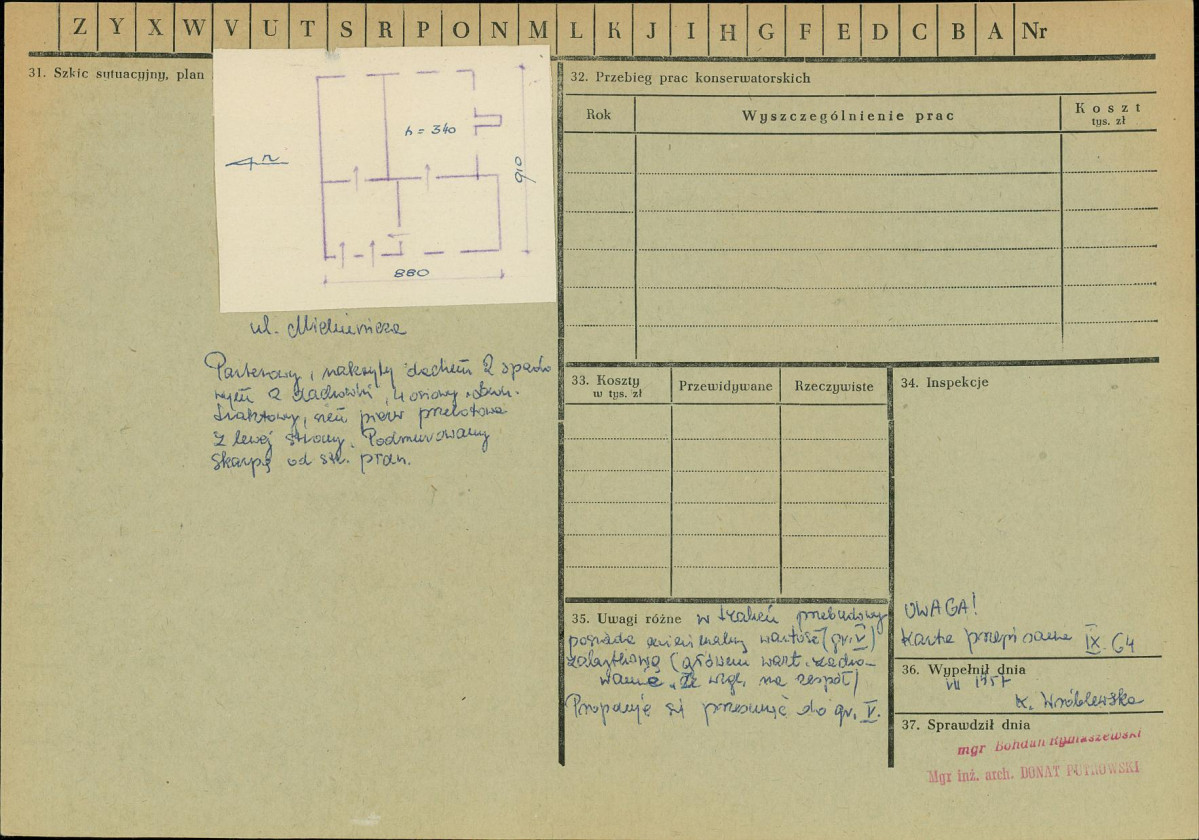 Z Y X W V U T S R P O N M L K J I H G F E D C B A Nr
31. Szkic sytuacyjny, plan
h = 340
n
910
880
ul.
Parterowy, nakryty dachem 2 spado
wym z dachówki, 4 osiowy, dwu-
traktowy, sień przelotowa
z lewej strony. Podmurowany
skarpą od str.
32. Przebieg prac konserwatorskich
Rok
Wyszczególnienie prac
Koszt
tys. zł
33. Koszty
w tys. zł
Przewidywane
Rzeczywiste
34. Inspekcje
UWAGA!
Karta przepisana IX. 64
35. Uwagi różne w trakcie przebudowy
posiada minimalną wartość (gr. V)
zabytkową (głównie wart. zacho-
wania ze wzgl. na zespół)
Proponuję się przesunąć do gr. V.
36. Wypełnił dnia
VII 1957
K. Wróblewska
37. Sprawdził dnia
mgr Bohdan Rymaszewski
Mgr inż. arch. DONAT PUTKOWSKI